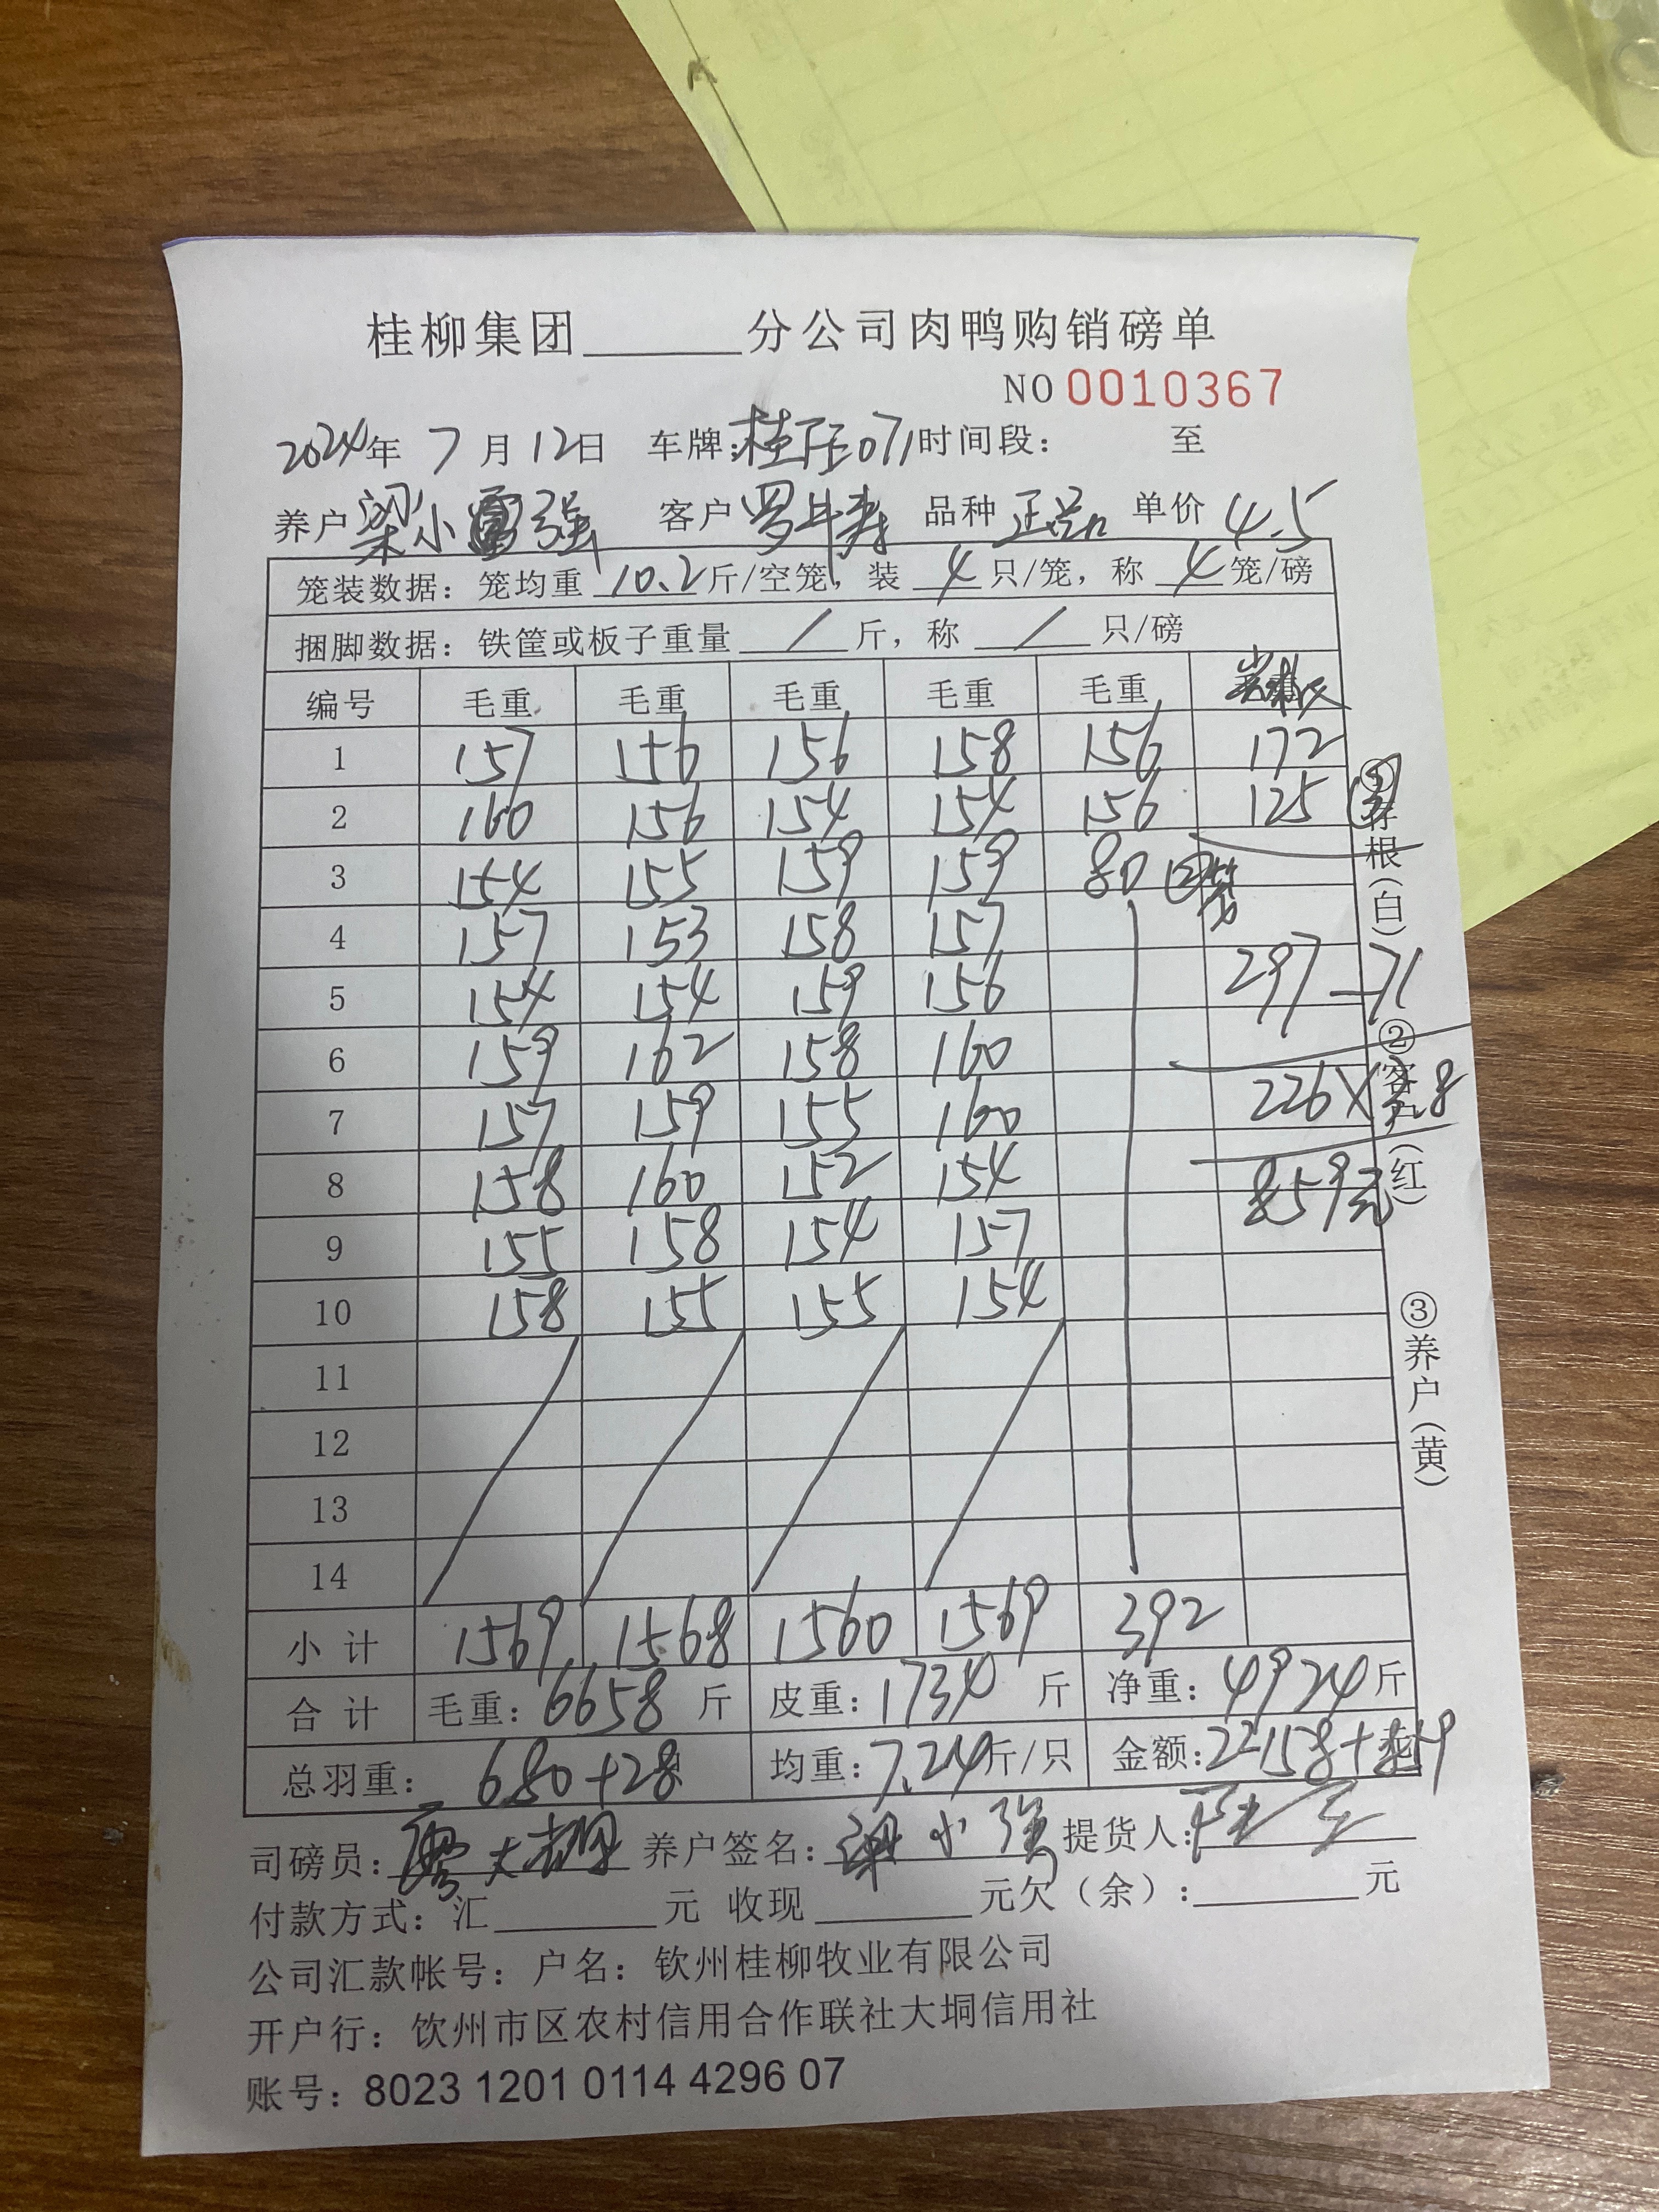 桂柳集团______分公司肉鸭购销磅单
NO 0010367
2024年 7月12日 车牌: 071 时间段: 至
养户 梁小强 客户 罗 品种 正品 单价 4.5
笼装数据: 笼均重 10.2 斤/空笼, 装 4 只/笼, 称 4 笼/磅
捆脚数据: 铁筐或板子重量 / 斤, 称 / 只/磅
编号 毛重 毛重 毛重 毛重 毛重
1 157 156 156 158 156 172
2 160 156 154 154 156 125
3 154 155 159 159 80 ②
4 157 153 158 157
5 154 154 159 156 297-71
6 159 162 158 160
7 157 159 155 160 226×3.8
8 158 160 152 154 859元
9 155 158 154 157
10 158 155 155 154
11
12
13
14
小计 1569 1568 1560 1569 392
合计 毛重: 6658 斤 皮重: 1734 斤 净重: 4924斤
总羽重: 680+28 均重: 7.24斤/只 金额: 22158+859
司磅员: 养户签名: 梁小强 提货人:
付款方式: 汇______元 收现______元欠(余):______元
公司汇款帐号: 户名: 钦州桂柳牧业有限公司
开户行: 钦州市区农村信用合作联社大垌信用社
账号: 8023 1201 0114 4296 07
①存根(白)
②客户(红)
③养户(黄)